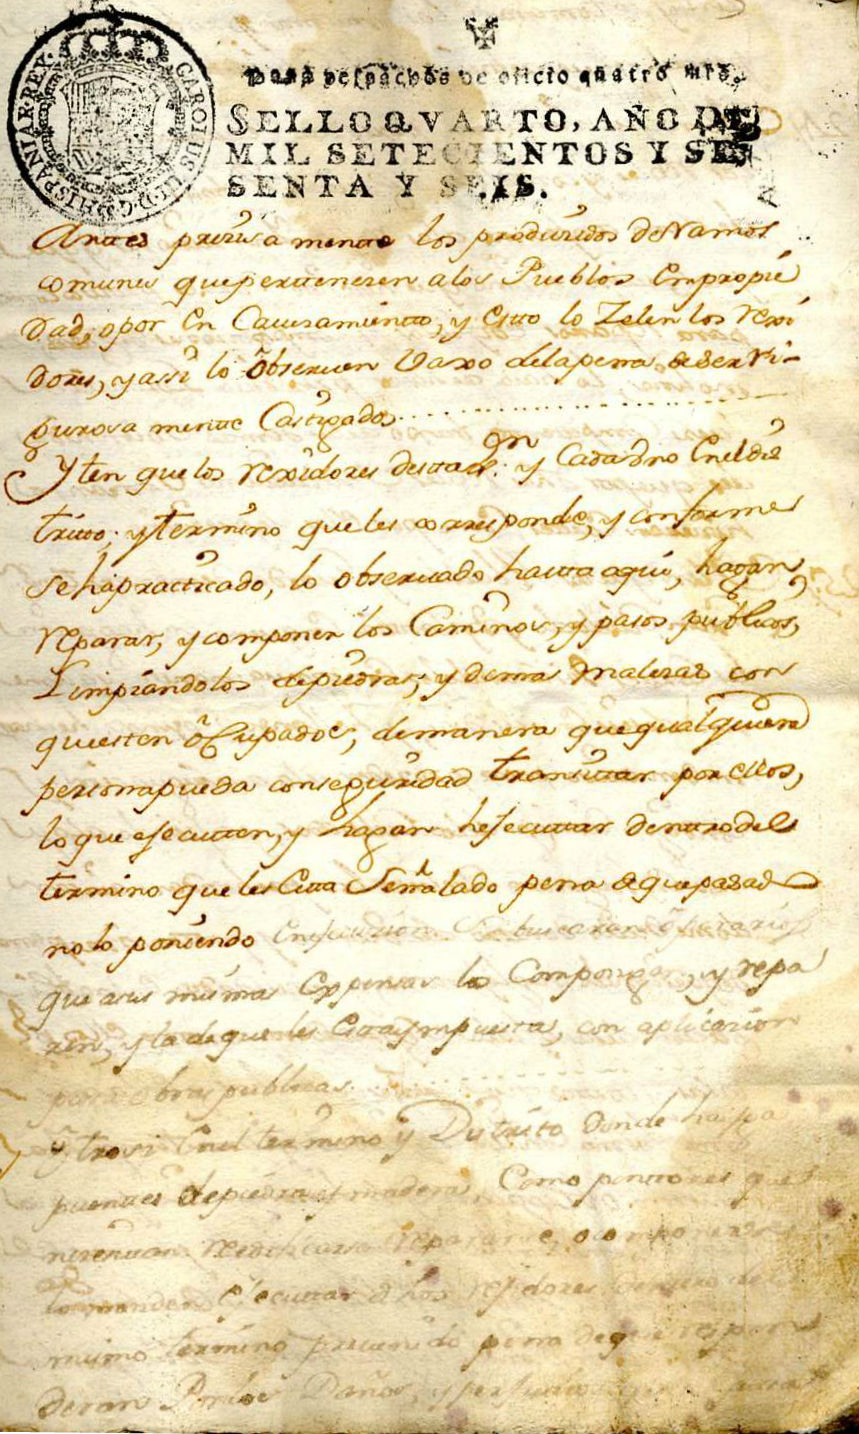 CAROLUS III D.G. HISPANIAR. REX
Para despachos de oficio quatro mrs.
SELLO QVARTO, AÑO DE
MIL SETECIENTOS Y SE
SENTA Y SEIS.
menos los produzidos de Ramos
comunes que pertenezen a los Pueblos en propie
Dad, o por en Cavezamiento, y esto lo Zelen los rexi
dores, y assi lo observen vaxo de la pena de ser ri-
gurosa mente Castigados
Yten que los rexidores desta y Cada Uno en el dis
tritto, y termino que les corresponde, y conforme
se ha practicado, lo observado hasta aqui, hagan
reparar, y componer los Caminos, y pasos publicos,
Limpiandolos de piedras, y demas malezas con
que esten ocupados, demanera que qualquiera
persona pueda con seguridad transitar por ellos,
lo que executten, y hagan hesecuttar dentro del
termino que les esta Señalado pena de que pasado
no lo poniendo en execuzion se buscaran operarios
que a sus mismas expensas lo Compongan, y repa
ren, y la de que les esta ympuesta, con aplicazion
para obras publicas
Ytrosi en el termino y Distrito donde haiga
puentes de piedra y madera, Como pontones que
nezesitan reedificarse repararse, o componerse
lo manden executtar dhos rexidores dentro del
mismo termino prevenido pena de que respon
deran Por los Daños, y perjuicios